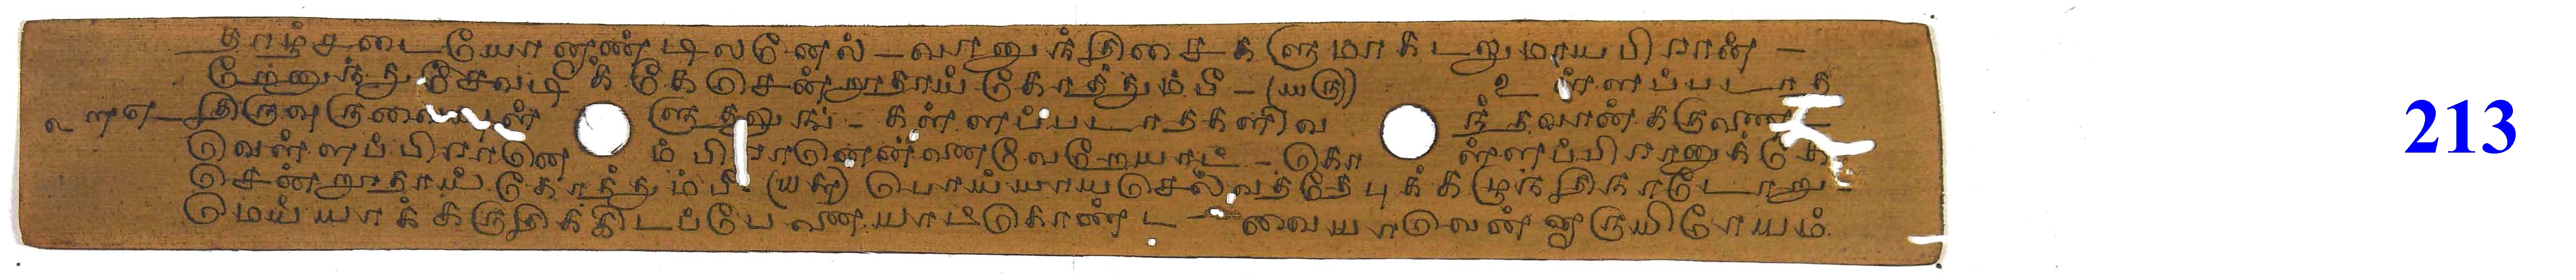 தாழ்சடையோனாண்டிலனேல் - வானுந்திசைகளுமாகடலுமாயபிரான் -
றேனுந்துசேவடிக்கேசென்றூதாய்கோத்தும்பீ - (யரு) உள்ளப்படாத
திருவுருவை ளுதலுங் - கள்ளப்படாதகளிவ ந்தவான்கருணை -
வெள்ளப்பிரானெ ம்பிரானென்னைவேறேயாட் - கொ ள்ளப்பிரானுக்கே
சென்றூதாய்கோத்தும்பீ - (யசு) பொய்யாயசெல்வத்தேபுக்கழுந்திநாடோறு -
மெய்யாக்கருதிக்கிடப்பேனையாட்கொண்ட - வையாவென்னாருயிரேயம்
213